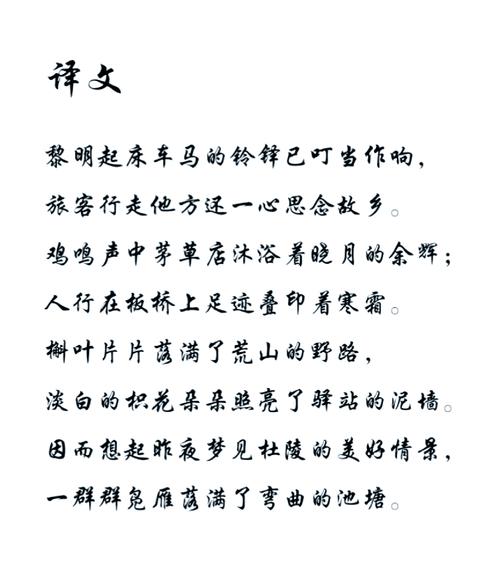 译文
黎明起床车马的铃铎已叮当作响，
旅客行走他方还一心思念故乡。
鸡鸣声中茅草店沐浴着晓月的余辉；
人行在板桥上足迹叠印着寒霜。
槲叶片片落满了荒山的野路，
淡白的枳花朵朵照亮了驿站的泥墙。
因而想起昨夜梦见杜陵的美好情景，
一群群凫雁落满了弯曲的池塘。